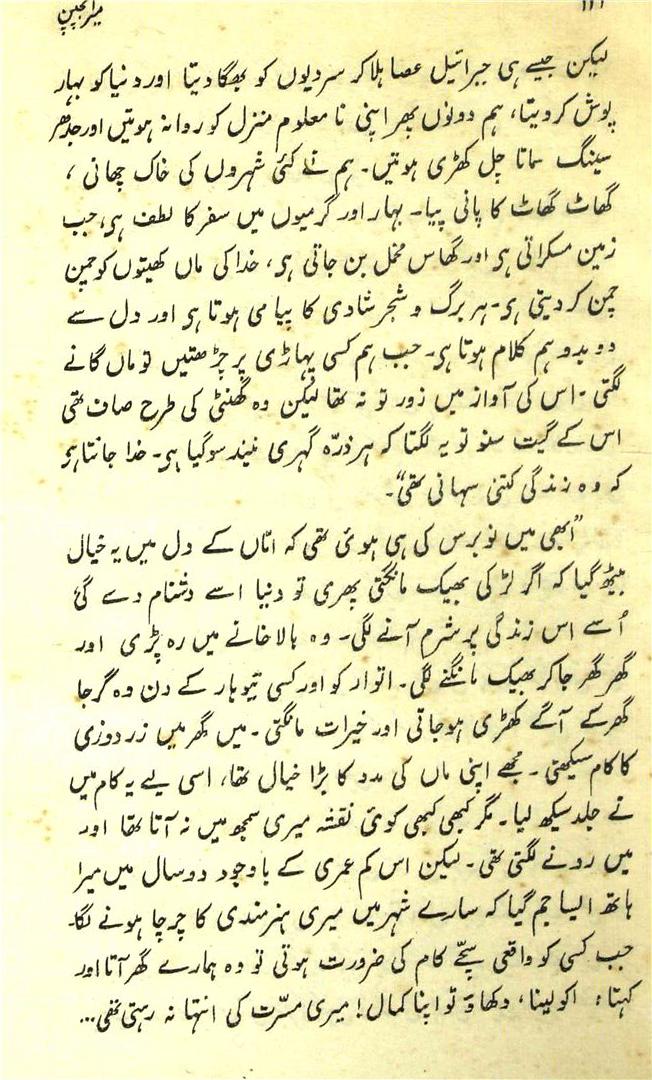 میرا بچپن
لیکن جیسے ہی جبرائیل عصا ہلا کر سردیوں کو بھگا دیتا اور دنیا کو بہار
پوش کر دیتا، ہم دونوں پھر اپنی نا معلوم منزل کو روانہ ہوتیں اور جدھر
سینگ سماتا چل کھڑی ہوتیں۔ ہم نے کئی شہروں کی خاک چھانی ،
گھاٹ گھاٹ کا پانی پیا۔ بہار اور گرمیوں میں سفر کا لطف ہی، جب
زمین مسکراتی ہی اور گھاس مخمل بن جاتی ہی، خدا کی ماں کھیتوں کو چمن
چمن کر دیتی ہی۔ ہر برگ و شجر شادی کا پیامی ہوتا ہی اور دل سے
دو بدو ہم کلام ہوتا ہی۔ جب ہم کسی پہاڑی پر چڑھتیں تو ماں گانے
لگتی ۔ اس کی آواز میں زور تو نہ تھا لیکن وہ گھنٹی کی طرح صاف تھی
اس کے گیت سنو تو یہ لگتا کہ ہر ذرّہ گہری نیند سو گیا ہی۔ خدا جانتا ہو
کہ وہ زندگی کتنی سہانی تھی“۔
”ابھی میں نو برس کی ہی ہوئی تھی کہ امّاں کے دل میں یہ خیال
بیٹھ گیا کہ اگر لڑکی بھیک مانگتی پھری تو دنیا اسے دشنام دے گی
اُسے اس زندگی پر شرم آنے لگی۔ وہ بالا خانے میں رہ پڑی اور
گھر گھر جا کر بھیک مانگنے لگی۔ اتوار کو اور کسی تیوہار کے دن وہ گرجا
گھر کے آگے کھڑی ہو جاتی اور خیرات مانگتی ۔ میں گھر میں زردوزی
کا کام سیکھتی ۔ مجھے اپنی ماں کی مدد کا بڑا خیال تھا، اسی لیے یہ کام میں
نے جلد سیکھ لیا۔ مگر کبھی کبھی کوئی نقشہ میری سمجھ میں نہ آتا تھا اور
میں رونے لگتی تھی۔ لیکن اس کم عمری کے باوجود دو سال میں میرا
ہاتھ ایسا جم گیا کہ سارے شہر میں میری ہنرمندی کا چرچا ہونے لگا۔
جب کسی کو واقعی سچّے کام کی ضرورت ہوتی تو وہ ہمارے گھر آتا اور
کہتا: اکولینا، دکھاؤ تو اپنا کمال! میری مسرّت کی انتہا نہ رہتی تھی...